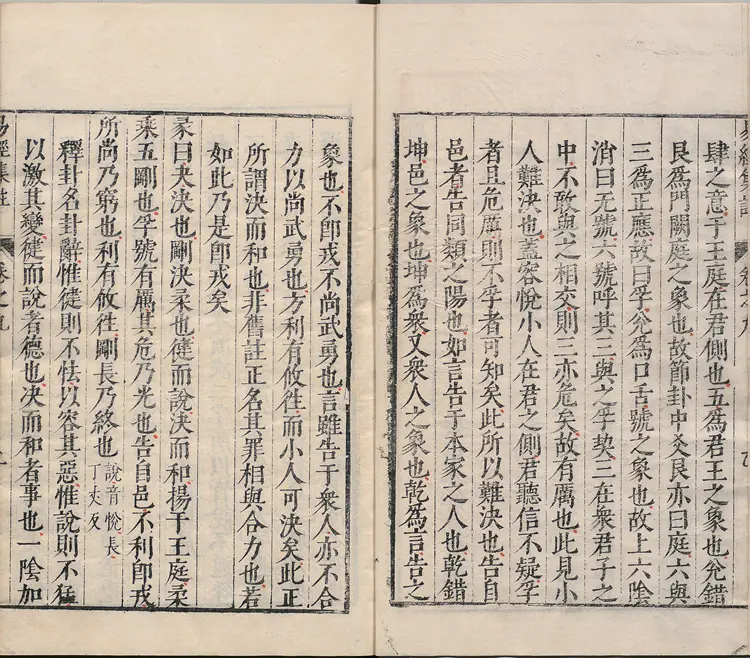 肆之意于王庭在君側也五爲君王之象也兊錯
艮爲門闕庭之象也故節卦中爻艮亦曰庭六與
三爲正應故曰孚兊爲口舌號之象也故上六陰
消曰无號六號呼其三與之孚契三在衆君子之
中不敢與之相交則三亦危矣故有厲也此見小
人難决也蓋容悅小人在君之側君聽信不疑孚
者且危厲則不孚者可知矣此所以難决也告自
邑者告同類之陽也如言告于本家之人也乾錯
坤邑之象也坤爲衆又衆人之象也乾爲言告之
象也不卽戎不尚武勇也言雖告于衆人亦不合
力以尚武勇也方利有攸徃而小人可決矣此正
所謂決而和也非舊註正名其罪相與合力也若
如此乃是卽戎矣
彖曰夬決也剛決柔也健而說決而和揚于王庭柔
乘五剛也孚號有厲其危乃光也告自邑不利卽戎
所尚乃窮也利有攸徃剛長乃終也 說音悅長
丁丈反
釋卦名卦辭惟健則不怯以容其惡惟說則不猛
以激其變健而說者德也決而和者事也一陰加
易經集註